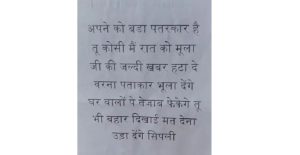 अपने को बडा पतरकार है
तू कोसी मैं रात को मूला
जी की जल्दी खबर हटा दे
वरना पताकार भूला देंगे
घर वालों पे तेजाब फेकेगे तू
भी बहार दिखाई मत देना
उडा देंगे सिपली